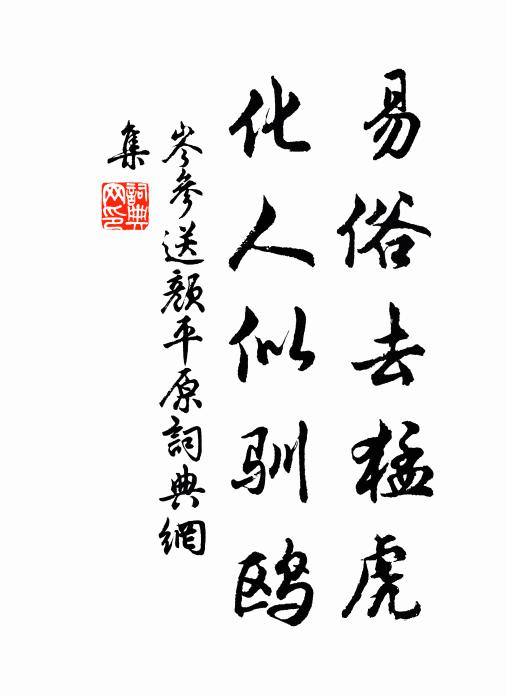 易俗去猛虎
化人似驯鸥
岑參送顏平原詞典網
集
詞典
网印